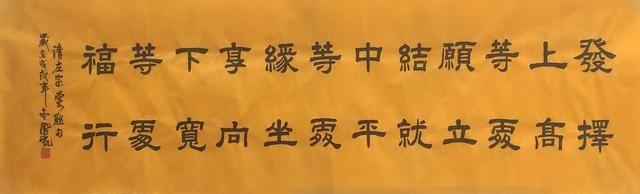 發上等願結中等緣享下等福
擇高處立就平處坐向寬處行
清左宗棠聯句
歲在戊戌年冬